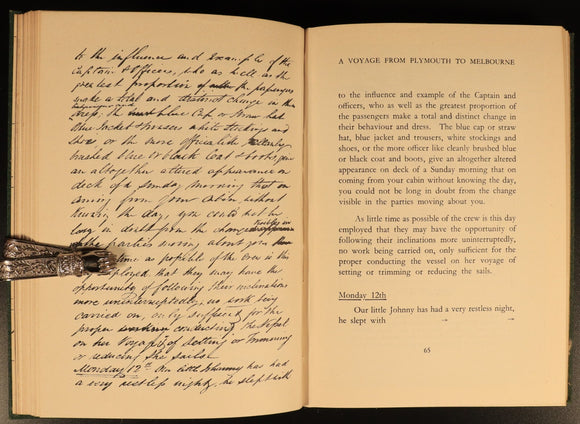 to the influence and example of the
Captain & Officers, who as well as the
greatest proportion of the passengers
make a total and distinct change in their
dress, the blue Cap or Straw hat
blue Jacket & trousers white Stockings and
shoes or the more officerlike cleanly
brushed blue or black Coat & boots, give
an altogether altered appearance on
deck of a Sunday morning that on
coming from your Cabin without
knowing the day, you could not be
long in doubt from the change visible in
the parties moving about you
time as possible of the Crew is this
day employed that they may have the
opportunity of following their inclinations
more uninterruptedly, no work being
carried on, only sufficient for the
proper conducting the Vessel
on her Voyage of Setting or trimming
or reducing the sails
Monday 12th Our little Johnny has had
a very restless night, he slept with
A VOYAGE FROM PLYMOUTH TO MELBOURNE
to the influence and example of the Captain and
officers, who as well as the greatest proportion of
the passengers make a total and distinct change in
their behaviour and dress. The blue cap or straw
hat, blue jacket and trousers, white stockings and
shoes, or the more officer like cleanly brushed blue
or black coat and boots, give an altogether altered
appearance on deck of a Sunday morning that on
coming from your cabin without knowing the day,
you could not be long in doubt from the change
visible in the parties moving about you.
As little time as possible of the crew is this day
employed that they may have the opportunity of
following their inclinations more uninterruptedly,
no work being carried on, only sufficient for the
proper conducting the vessel on her voyage of
setting or trimming or reducing the sails.
Monday 12th
Our little Johnny has had a very restless night,
he slept with
65